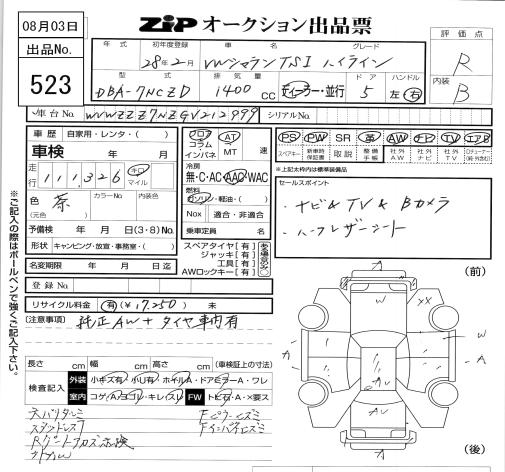 08月03日
ZIP オークション出品票
出品No. 523
年式 初年度登録 車名 グレード
28年2月 VWシャラン TSI ハイライン
評価点 R
内装 B
型式 排気量 ドア ハンドル
DBA-7NCZD 1400 CC ディーラー・並行 5 左 右
車台No. WVWZZZ7NZGV212999 シリアルNo.
車歴 自家用・レンタ・( )
車検 年 月
走行 111,326 キロ マイル
色 茶 (元色) カラーNo. 内装色
予備検 年 月 日(3・8)No.
形状 キャンピング・放宣・事務室・( )
名変期限 年 月 日迄
登録No.
フロア コラム インパネ AT MT 速
冷房 無・C・AC AAC WAC
燃料 ガソリン・軽油・( )
Nox 適合・非適合
乗車定員 名
スペアタイヤ[有]
ジャッキ[有]
工具[有]
AWロックキー[有]
PS PW SR 革 AW ナビ TV エアB
スペアキー 新車時保証書 取説 整備手帳 社外AW 社外ナビ 社外TV
※上記太枠内は標準装備品
セールスポイント
・ナビ&TV&Bカメラ
・ハーフレザーシート
リサイクル料金 有(¥17,250) 未
(注意事項) 純正AW+タイヤ車内有
長さ cm 幅 cm 高さ cm (車検証上の寸法)
検査記入 外装 小キズ有・小U有・ホイルA・ドアミラーA・ワレ
室内 コゲ・ヨゴレ・キレ・スレ FW トビ石・A・×要ス
Fピラーヒズミ
(前)
A
W XX
W
A A A
W
AW
A
(後)
※ご記入の際はボールペンで強くご記入下さい。